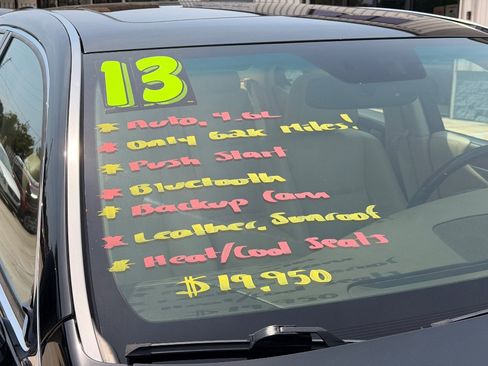 13
* Auto, 4.6L
* Only 62K Miles!
* Push Start
* Bluetooth
* Backup Cam
* Leather, Sunroof
* Heat/Cool Seats
$19,950